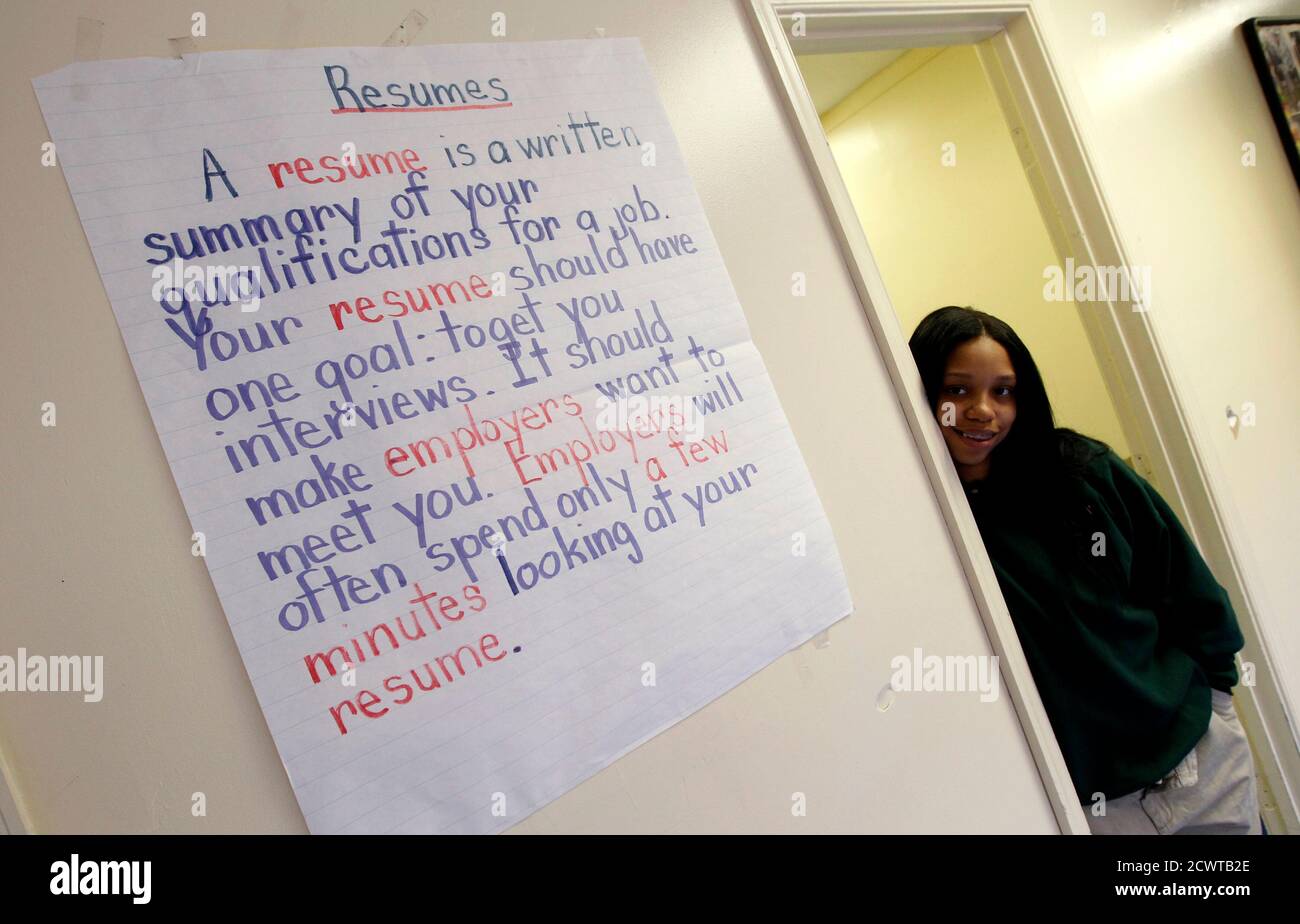 Resumes
A resume is a written
summary of your
qualifications for a job.
Your resume should have
one goal: to get you
interviews. It should
make employers want to
meet you. Employers will
often spend only a few
minutes looking at your
resume.
alamy
Image ID: 2CWTB2E
www.alamy.com